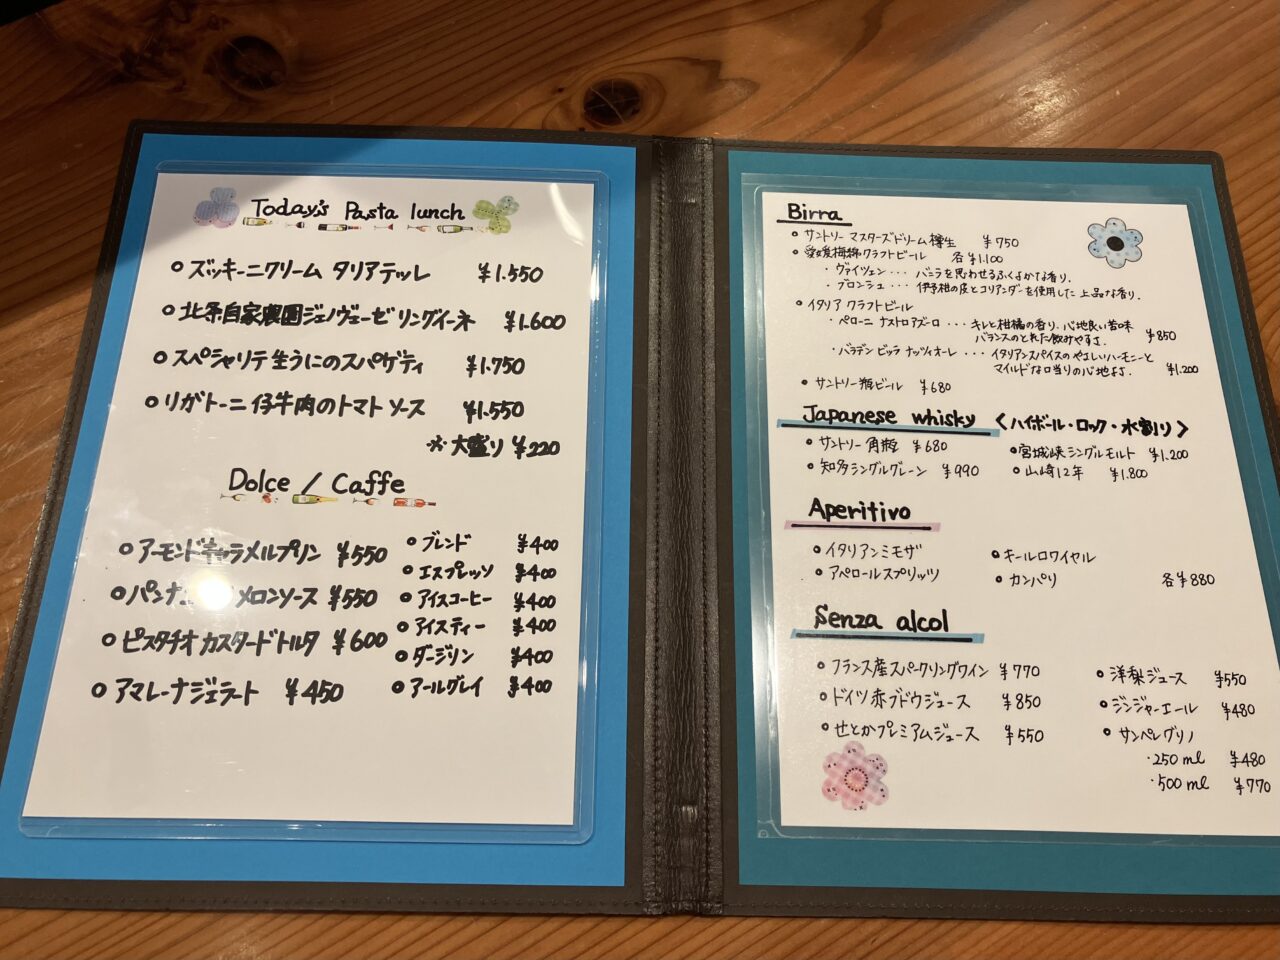 Today's Pasta lunch
○ ズッキーニクリーム タリアテッレ ¥1.550
○ 北条自家農園ジェノヴェーゼ リングイーネ ¥1.600
○ スペシャリテ 生うにのスパゲティ ¥1.750
○ リガトーニ 仔牛肉のトマトソース ¥1.550
※ 大盛り ¥220
Dolce / Caffe
○ アーモンドキャラメルプリン ¥550
○ パンナ メロンソース ¥550
○ ピスタチオ カスタードトルタ ¥600
○ アマレーナジェラート ¥450
○ ブレンド ¥400
○ エスプレッソ ¥400
○ アイスコーヒー ¥400
○ アイスティー ¥400
○ ダージリン ¥400
○ アールグレイ ¥400
Birra
○ サントリー マスターズドリーム 樽生 ¥750
○ 愛媛梅錦クラフトビール 各¥1.100
・ヴァイツェン・・・ バニラを思わせるふくよかな香り.
・ブロンシュ・・・ 伊予柑の皮とコリアンダーを使用した 上品な香り.
○ イタリア クラフトビール
・ペローニ ナストロアズーロ ・・・ キレと柑橘の香り.心地良い苦味
バランスのとれた飲みやすさ. ¥850
・バラデン ビッラ ナッツィオーレ ・・・ イタリアンスパイスのやさしいハーモニーと
マイルドな口当りの心地よさ. ¥1.200
○ サントリー 瓶ビール ¥680
Japanese whisky 〈ハイボール・ロック・水割り〉
○ サントリー 角瓶 ¥680
○ 知多シングルグレーン ¥990
○ 宮城峡シングルモルト ¥1.200
○ 山崎12年 ¥1.800
Aperitivo
○ イタリアンミモザ
○ アペロールスプリッツ
○ キールロワイヤル
○ カンパリ 各¥880
Senza alcol
○ フランス産スパークリングワイン ¥770
○ ドイツ赤ブドウジュース ¥850
○ せとかプレミアムジュース ¥550
○ 洋梨ジュース ¥550
○ ジンジャーエール ¥480
○ サンペレグリノ
・250 ml ¥480
・500 ml ¥770